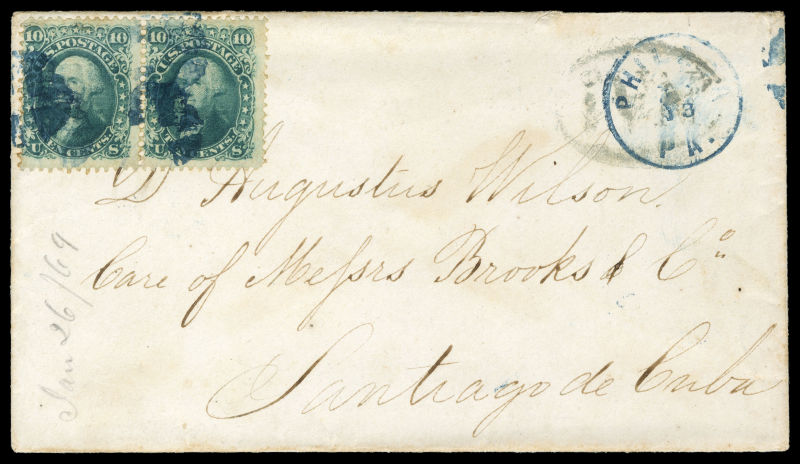 10 U.S. POSTAGE 10
TEN CENTS
U S
10 U.S. POSTAGE 10
CENTS
U S
PHIL
PA.
Dr Augustus Wilson,
Care of Meſsrs Brooks & Cº
Santiago de Cuba
Jan 26/69